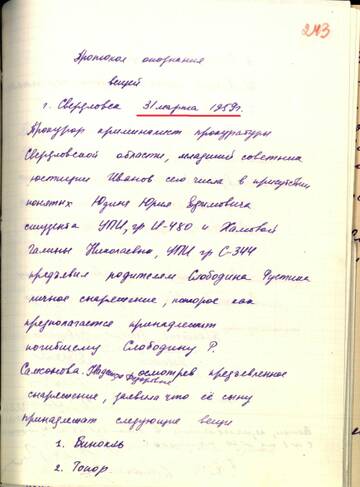 243
Протокол опознания
вещей
г. Свердловск 31 марта 1959г.
Прокурор криминалист прокуратуры
Свердловской области, младший советник
юстиции Иванов сего числа в присутствии
понятых Юдина Юрия Ефимовича
студента УПИ, гр И-480 и Хамовой
Галины Николаевны, УПИ гр С-344
предъявил родителям Слободина Рустика
личное снаряжение, которое как
предполагается принадлежит
погибшему Слободину Р.
осмотрев предъявленное
снаряжение, заявила что её сыну
принадлежат следующие вещи
1. Бинокль
2. Топор